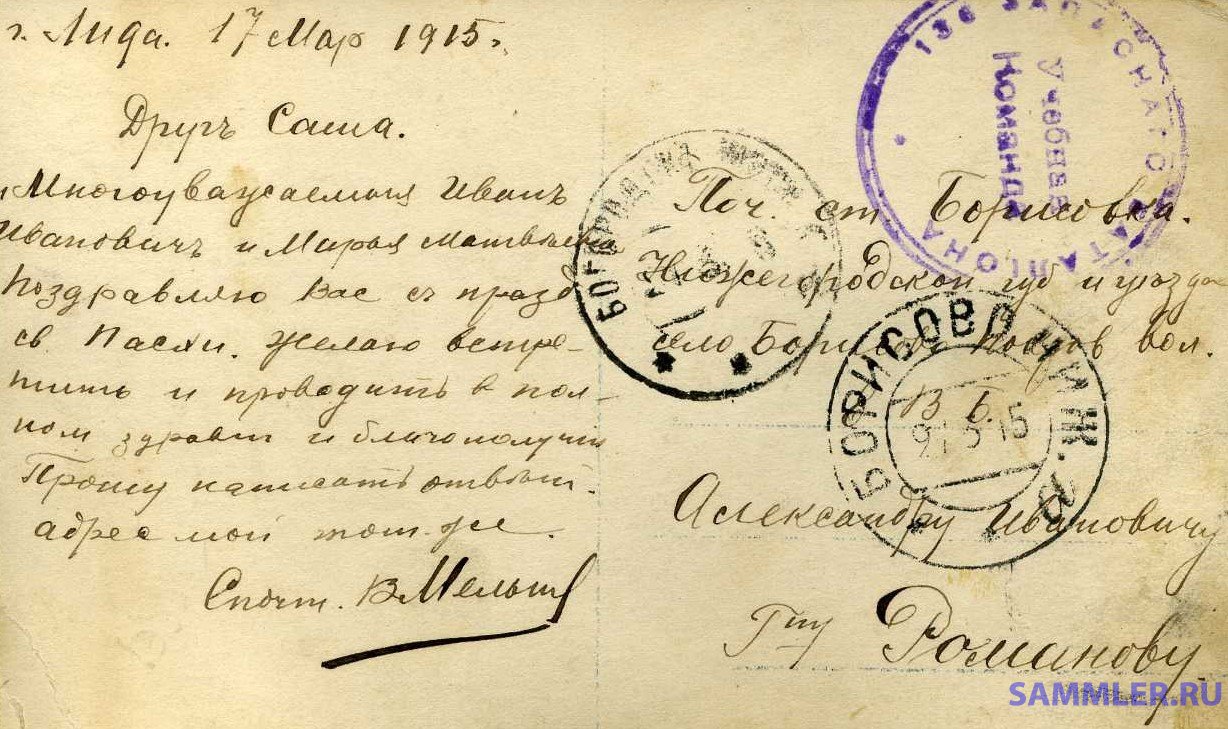 г. Лида. 17 Мар 1915 г.
Другъ Саша.
Многоуважаемыя Иванъ
Ивановичъ и Марья Матвѣевна
Поздравляю Вас съ празд
св Пасхи. Желаю встре-
тить и проводить в пол-
ном здравіи и благополучіи
Прошу написать отвѣт.
адрес мой тот-же.
С почт. В Мельн
136 ЗАПАСНАГО БАТАЛІОНА
Учебная
Команда
Поч. ст. Борисовка.
Нижегородской губ и уѣзда
село Борисов вол.
БОРИСОВО НИЖ.
9 3 15
Александру Ивановичу
Гну Романову
SAMMLER.RU